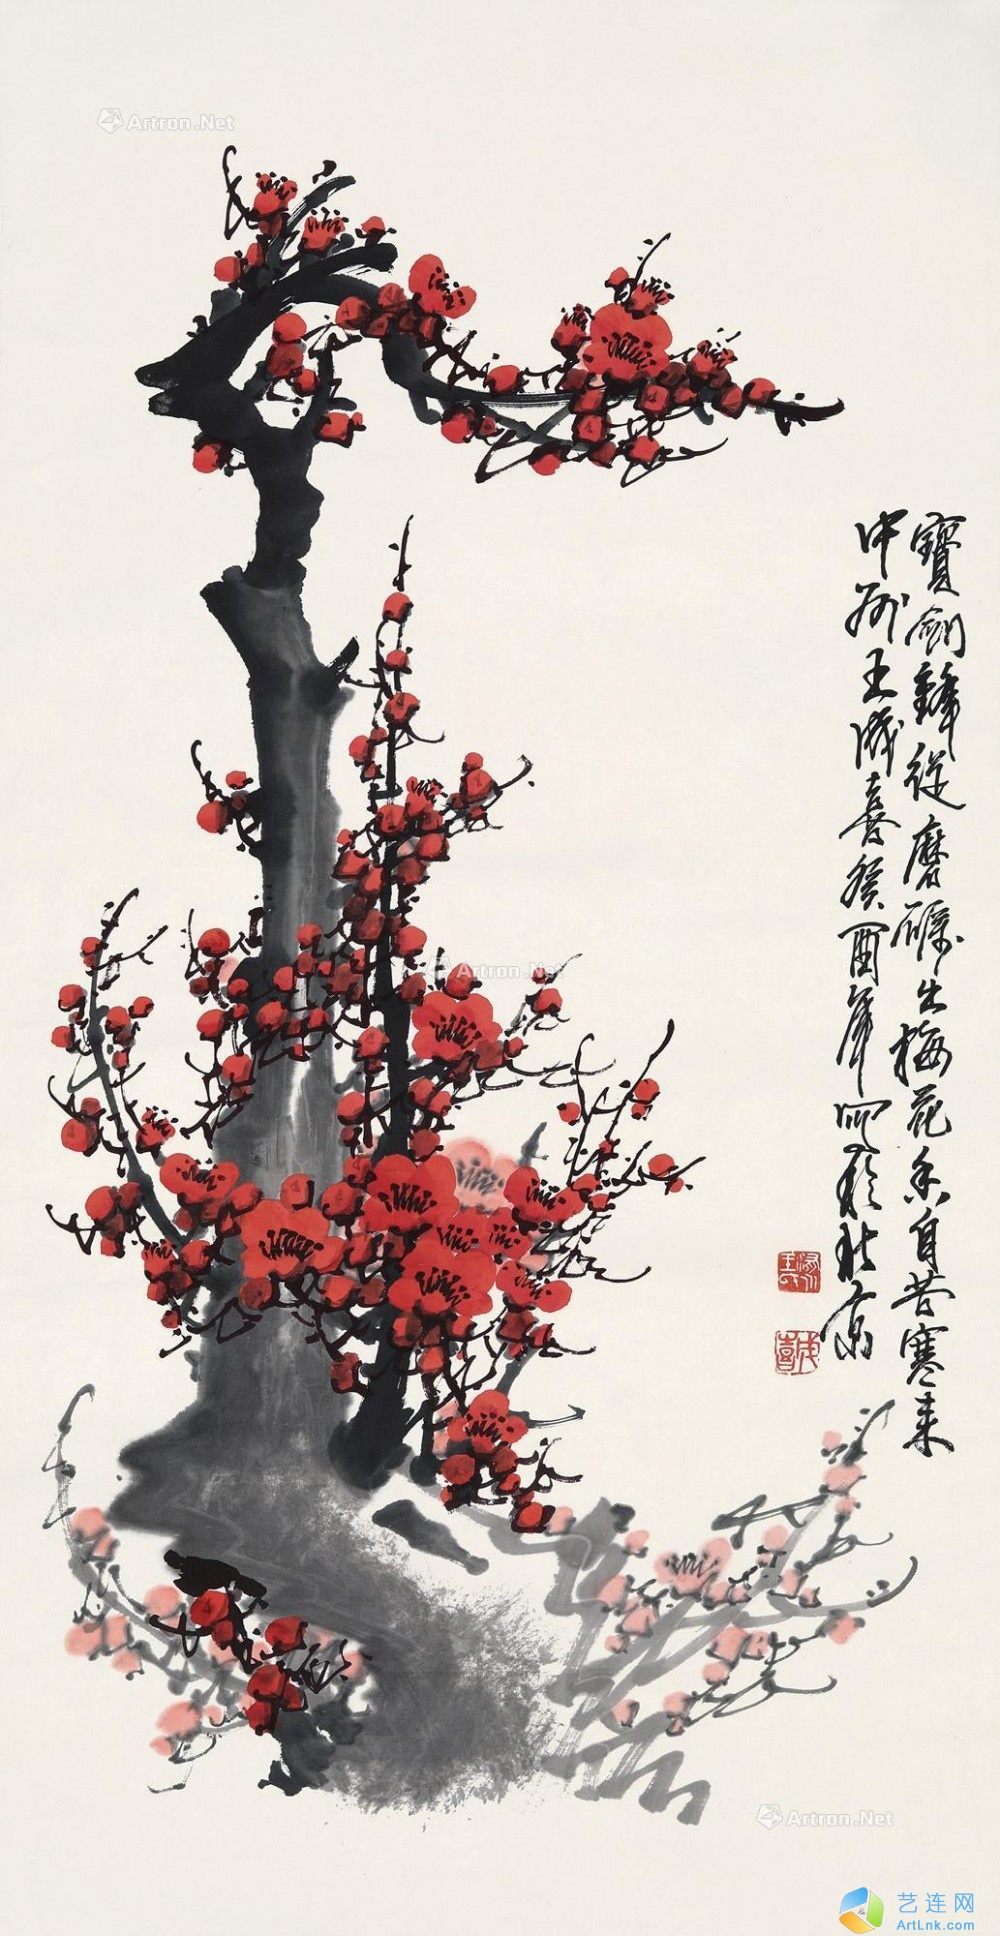 Artron.Net
寶劍鋒從磨礪出梅花香自苦寒来
中州王成喜癸酉年 於北京
Artron.Net
成喜
Artron.Net
艺连网
ArtLnk.com